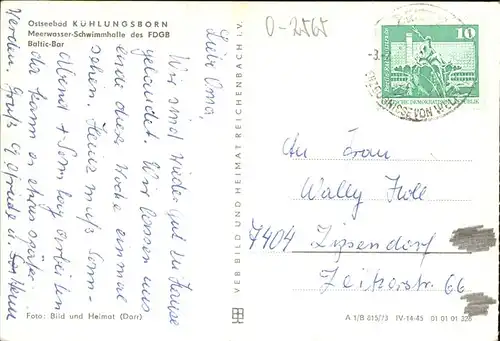 Ostseebad KÜHLUNGSBORN
Meerwasser-Schwimmhalle des FDGB
Baltic-Bar
0-2565
Liebe Oma,
Wir sind wieder gut zu Hause
gelandet. Wir lassen uns
Ende dieser Woche einmal
sehen. Heinz muß Sonn-
abend + Sonntag arbeiten
da kann es etwas später
werden. Gruß
Foto: Bild und Heimat (Darr)
VEB BILD UND HEIMAT REICHENBACH i. V.
10
DEUTSCHE DEMOKRATISCHE REPUBLIK
An Frau
Wally
7404 Zipsendorf
Zeitzerstr. 66
A 1/B 815/73 IV-14-45 01 01 01 326